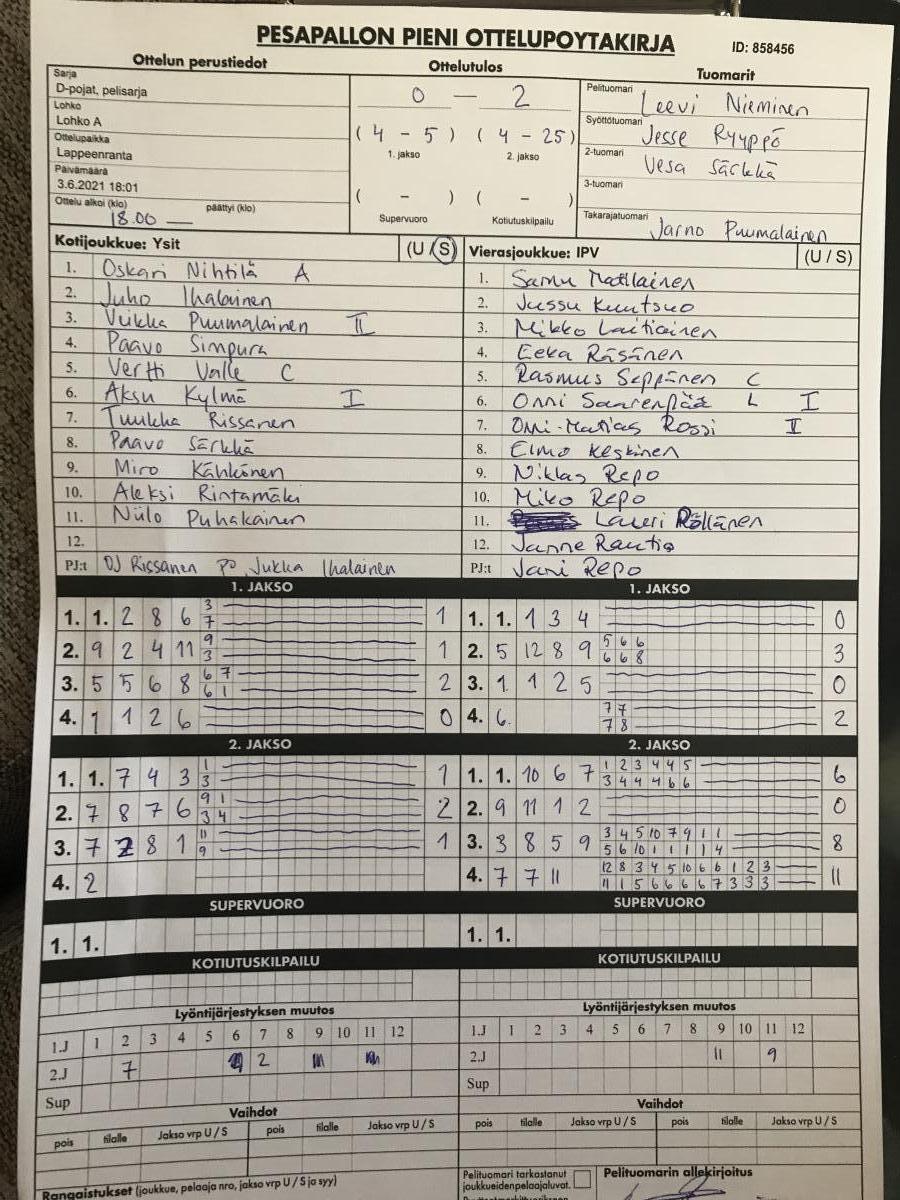 PESAPALLON PIENI OTTELUPOYTAKIRJA
ID: 858456
Ottelun perustiedot
Sarja
D-pojat, pelisarja
Lohko
Lohko A
Ottelupaikka
Lappeenranta
Päivämäärä
3.6.2021 18:01
Ottelu alkoi (klo) päättyi (klo)
18.00
Ottelutulos
0 — 2
( 4 - 5 ) ( 4 - 25)
1. jakso 2. jakso
( - ) ( - )
Supervuoro Kotiutuskilpailu
Tuomarit
Pelituomari Leevi Nieminen
Syöttötuomari Jesse Ryyppö
2-tuomari Vesa Särkkä
3-tuomari
Takarajatuomari Jarno Puumalainen
Kotijoukkue: Ysit (U / S)
1. Oskari Nihtilä A
2. Juho Ihalainen
3. Veikka Puumalainen II
4. Paavo Simpura
5. Vertti Valle C
6. Aksu Kylmä I
7. Tuukka Rissanen
8. Paavo Särkkä
9. Miro Kähkönen
10. Aleksi Rintamäki
11. Niilo Puhakainen
12.
PJ:t OJ Rissanen PO Jukka Ihalainen
Vierasjoukkue: IPV (U / S)
1. Samu Matilainen
2. Jussu Kuutsuo
3. Mikko Laitiainen
4. Eeka Räsänen
5. Rasmus Seppänen C
6. Onni Saarenpää L I
7. Omi-Matias Rossi II
8. Elmo Keskinen
9. Niklas Repo
10. Miko Repo
11. Lauri Röllänen
12. Janne Rautio
PJ:t Jani Repo
1. JAKSO
1. 1. 2 8 6 3 1
7
2. 9 2 4 11 9 1
3
3. 5 5 6 8 6 7 2
6 1
4. 1 1 2 6 0
1. JAKSO
1. 1. 1 3 4 0
2. 5 12 8 9 5 6 6 3
6 6 8
3. 1 1 2 5 0
4. 6. 7 7 2
7 8
2. JAKSO
1. 1. 7 4 3 1 1
3
2. 7 8 7 6 9 1 2
3 4
3. 7 2 8 1 11 1
9
4. 2
2. JAKSO
1. 1. 10 6 7 1 2 3 4 4 5 6
3 4 4 4 6 6
2. 9 11 1 2 0
3. 3 8 5 9 3 4 5 10 7 9 1 1 8
5 6 10 1 1 1 1 4
4. 7 7 11 12 8 3 4 5 10 6 6 1 2 3 11
11 1 5 6 6 6 6 7 3 3 3
SUPERVUORO
1. 1.
SUPERVUORO
1. 1.
KOTIUTUSKILPAILU
KOTIUTUSKILPAILU
Lyöntijärjestyksen muutos
1.J 1 2 3 4 5 6 7 8 9 10 11 12
2.J 7 2
Sup
Lyöntijärjestyksen muutos
1.J 1 2 3 4 5 6 7 8 9 10 11 12
2.J 11 9
Sup
Vaihdot
pois tilalle Jakso vrp U / S pois tilalle Jakso vrp U / S
Vaihdot
pois tilalle Jakso vrp U / S pois tilalle Jakso vrp U / S
Rangaistukset (joukkue, pelaaja nro, jakso vrp U / S ja syy)
Pelituomari tarkastanut
joukkueidenpelaajaluvat.
Pelituomarin allekirjoitus